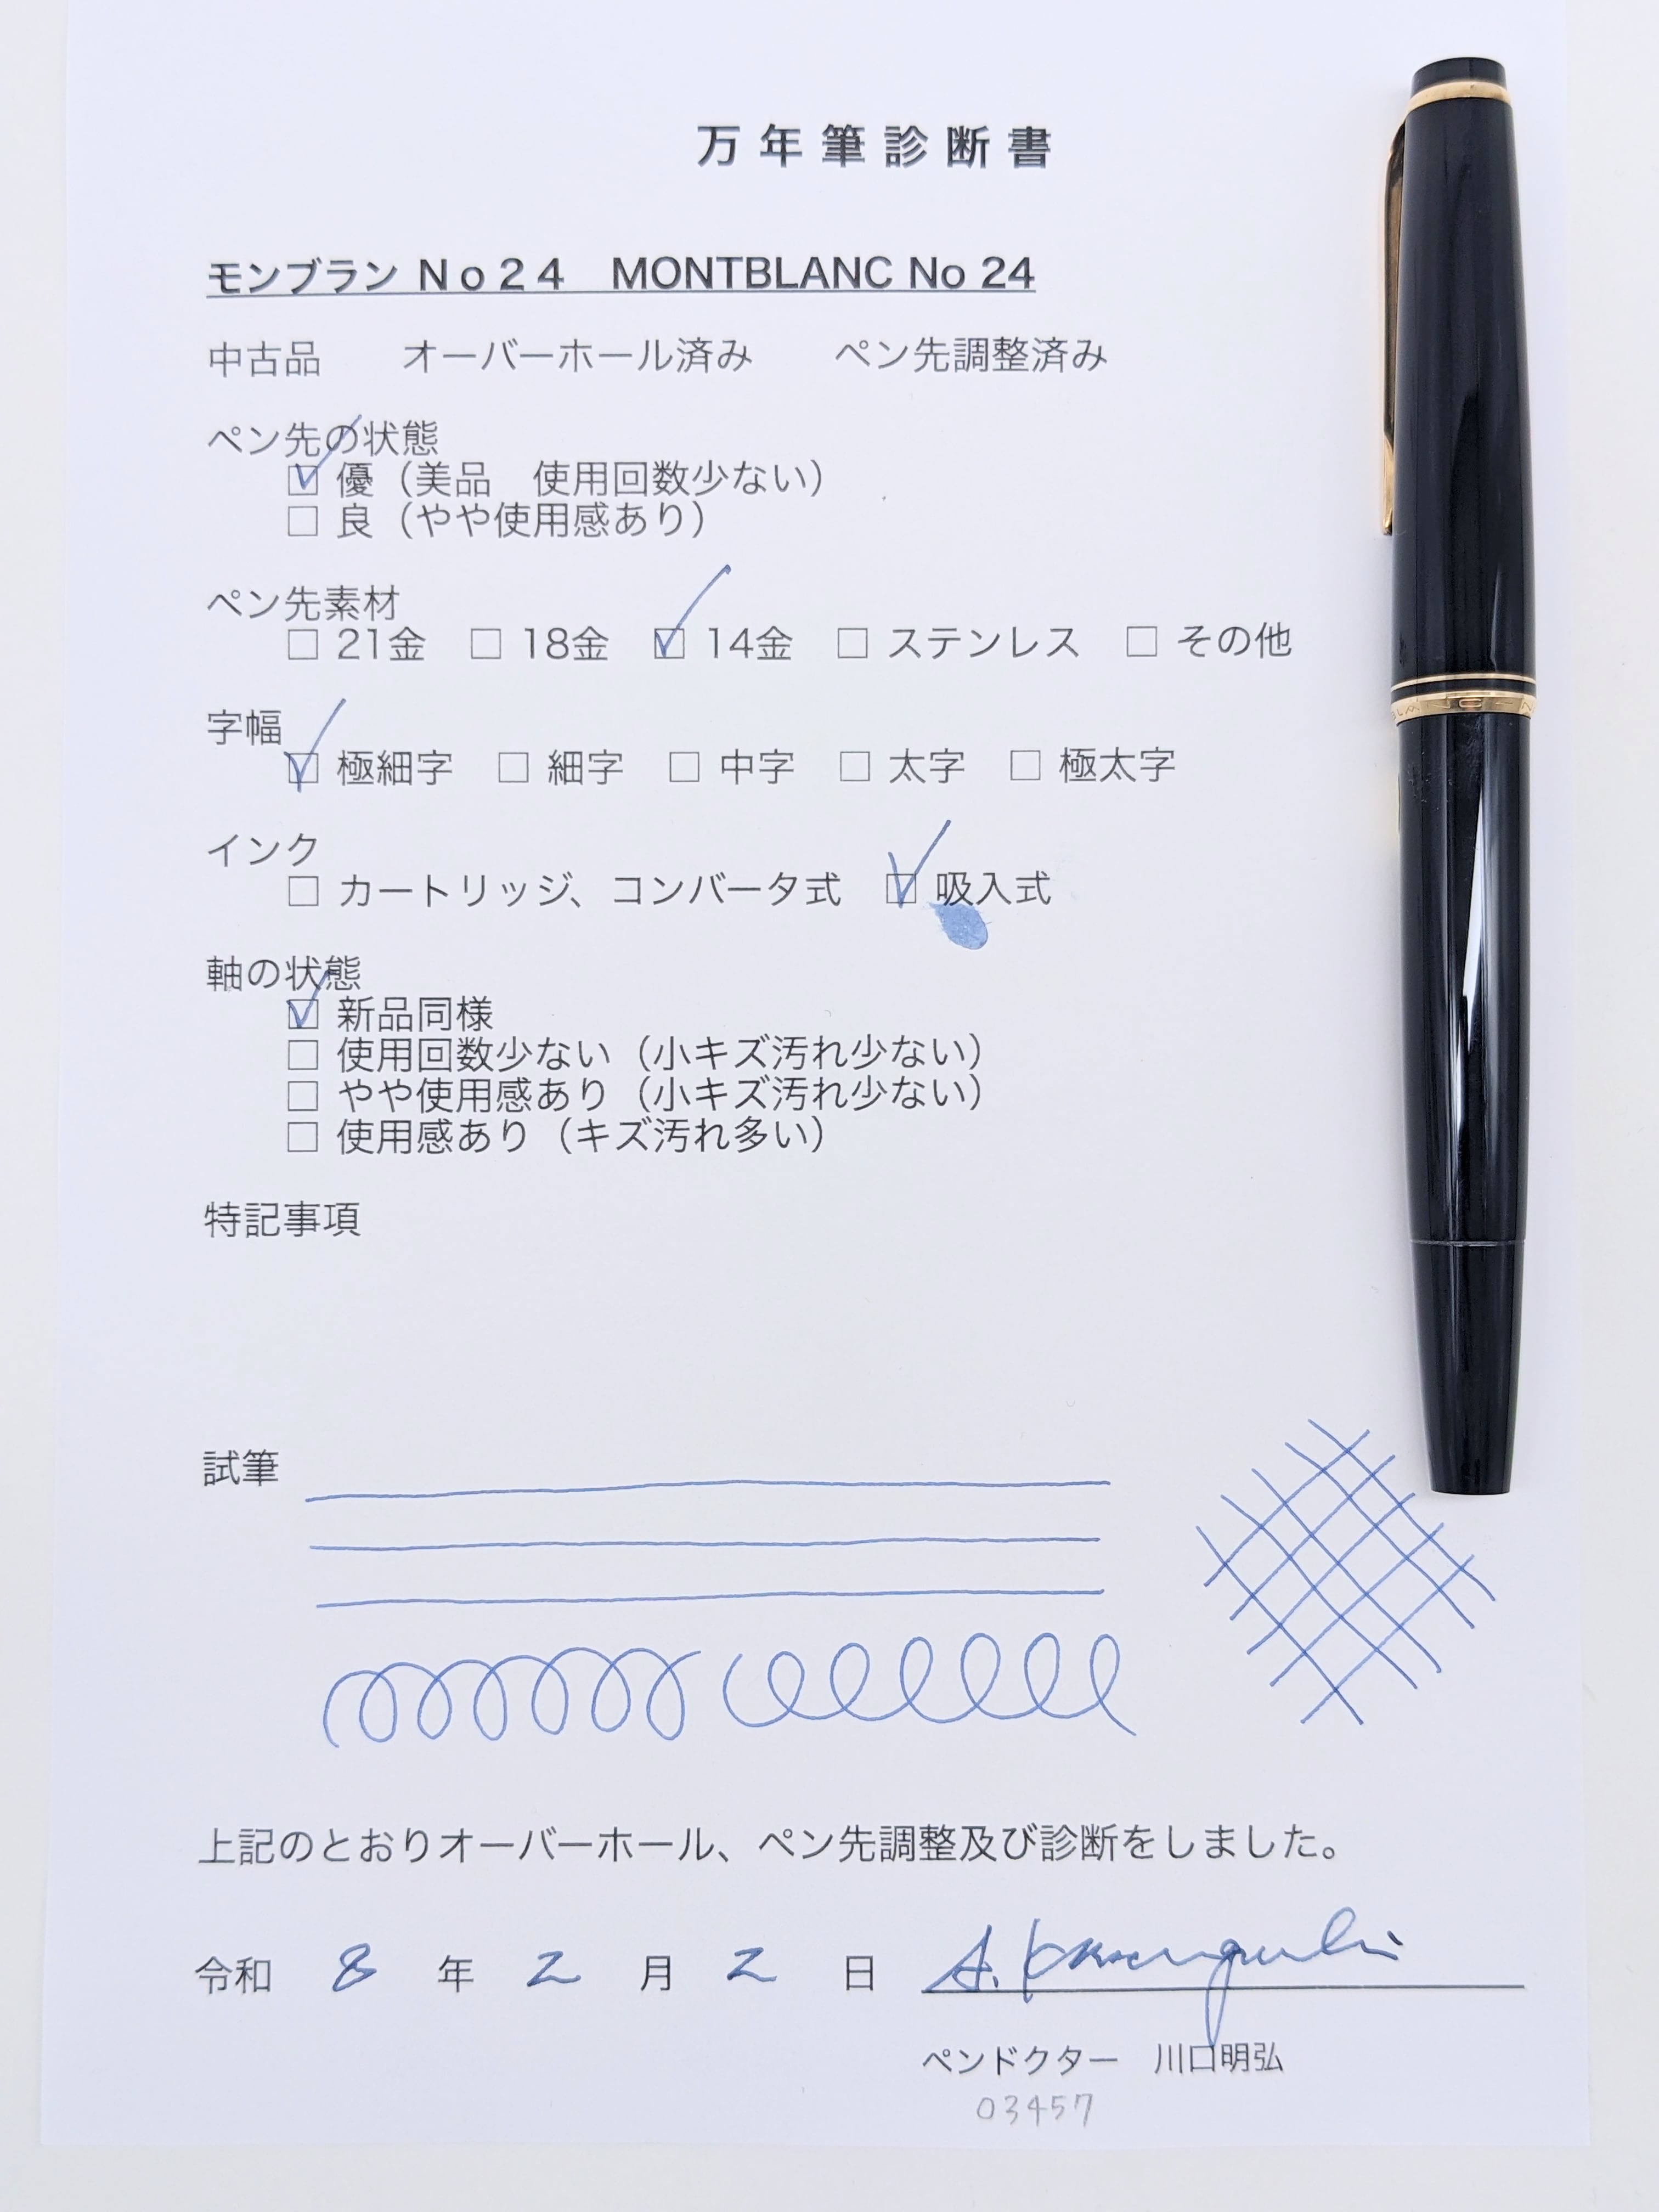 万年筆診断書
モンブラン Ｎｏ２４　MONTBLANC No 24
中古品　　オーバーホール済み　　ペン先調整済み
ペン先の状態
☑ 優（美品　使用回数少ない）
□ 良（やや使用感あり）
ペン先素材
□ 21金　□ 18金　☑ 14金　□ ステンレス　□ その他
字幅
☑ 極細字　□ 細字　□ 中字　□ 太字　□ 極太字
インク
□ カートリッジ、コンバータ式　☑ 吸入式
軸の状態
☑ 新品同様
□ 使用回数少ない（小キズ汚れ少ない）
□ やや使用感あり（小キズ汚れ少ない）
□ 使用感あり（キズ汚れ多い）
特記事項
試筆
上記のとおりオーバーホール、ペン先調整及び診断をしました。
令和　8　年　2　月　2　日　A. Kawaguchi
ペンドクター　川口明弘
03457